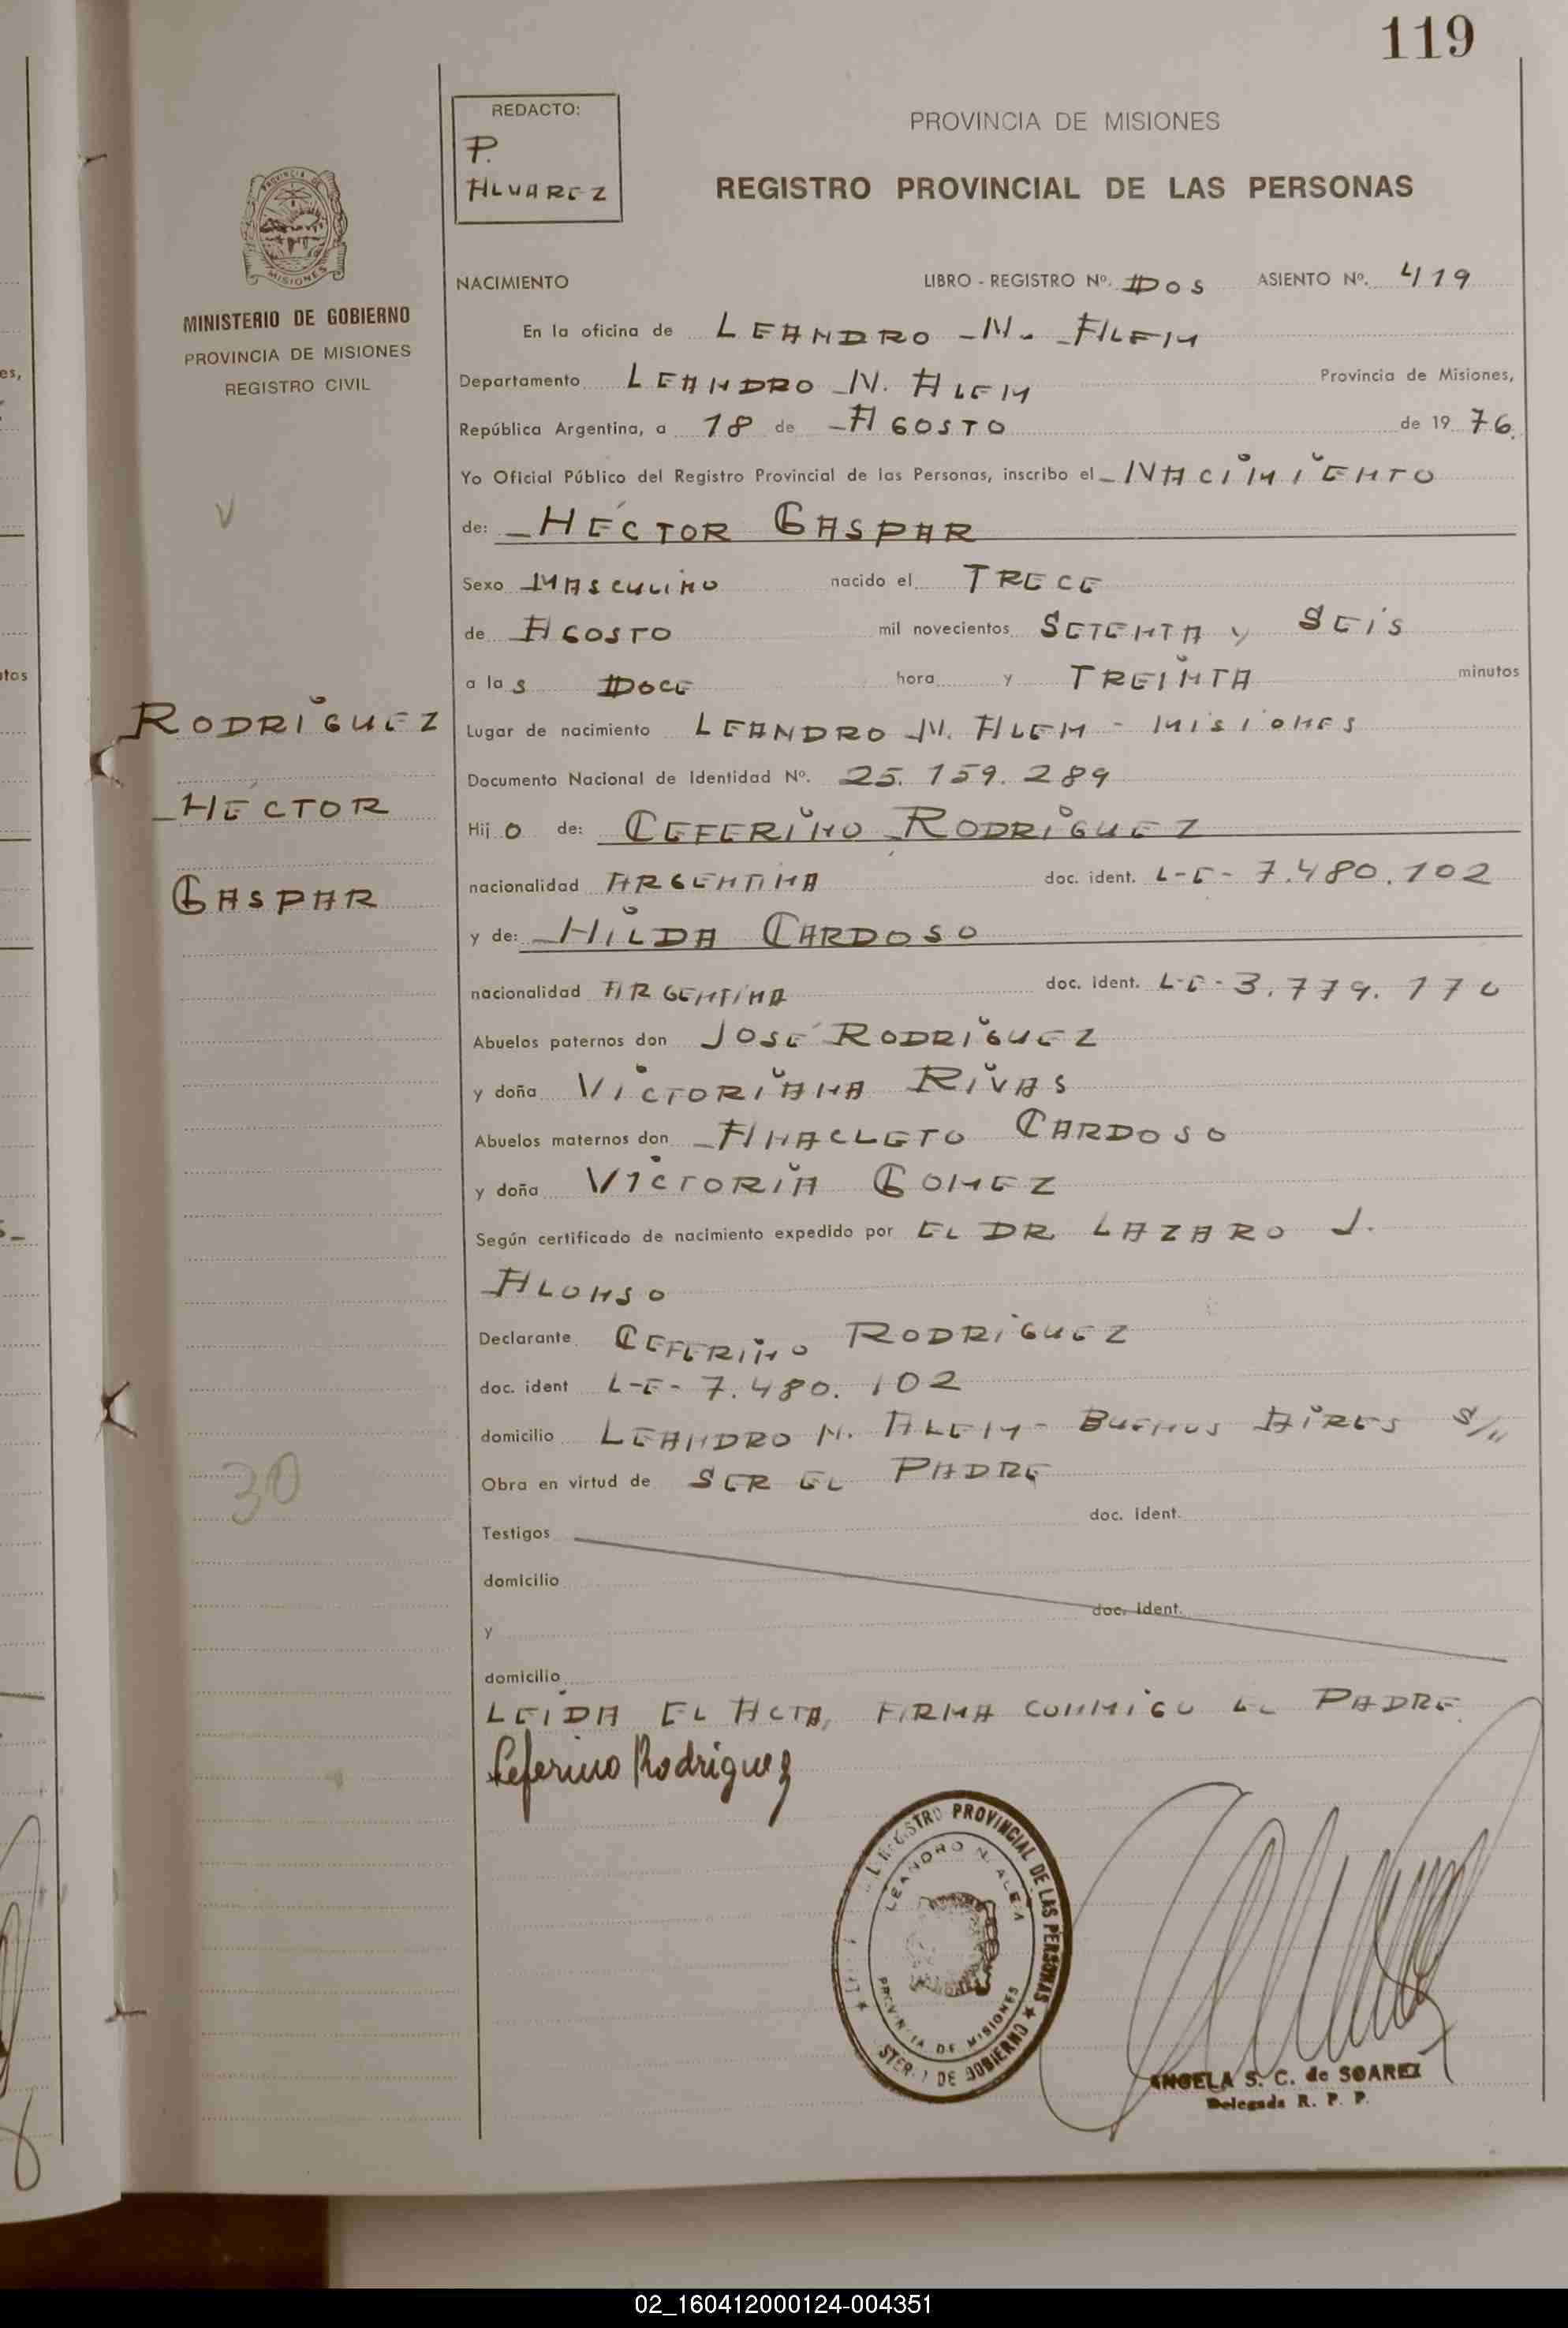 119
REDACTO:
P.
ALVAREZ
PROVINCIA DE MISIONES
REGISTRO PROVINCIAL DE LAS PERSONAS
PROVINCIA DE
MISIONES
MINISTERIO DE GOBIERNO
PROVINCIA DE MISIONES
REGISTRO CIVIL
NACIMIENTO LIBRO - REGISTRO Nº. DOS ASIENTO Nº. 419
En la oficina de LEANDRO N. ALEM
Departamento LEANDRO N. ALEM Provincia de Misiones,
República Argentina, a 18 de AGOSTO de 19 76.
Yo Oficial Público del Registro Provincial de las Personas, inscribo el NACIMIENTO
de: HÉCTOR GASPAR
Sexo MASCULINO nacido el TRECE
de AGOSTO mil novecientos SETENTA y SEIS
a las DOCE hora y TREINTA minutos
RODRIGUEZ
HÉCTOR
GASPAR
Lugar de nacimiento LEANDRO N. ALEM - MISIONES
Documento Nacional de Identidad Nº. 25.159.289
Hijo de: CEFERINO RODRIGUEZ
nacionalidad ARGENTINA doc. ident. L-E- 7.480.102
y de: HILDA CARDOSO
nacionalidad ARGENTINA doc. ident. L-E- 3.779.170
Abuelos paternos don JOSÉ RODRIGUEZ
y doña VICTORIANA RIVAS
Abuelos maternos don ANACLETO CARDOSO
y doña VICTORIA GOMEZ
Según certificado de nacimiento expedido por EL DR LAZARO J.
ALONSO
Declarante CEFERINO RODRIGUEZ
doc. ident L-E- 7.480.102
domicilio LEANDRO N. ALEM - BUENOS AIRES S/N
30
Obra en virtud de SER EL PADRE
Testigos doc. ident.
domicilio
y doc. ident.
domicilio
LEIDA EL ACTA, FIRMA CONMIGO EL PADRE.
Ceferino Rodriguez
REGISTRO PROVINCIAL DE LAS PERSONAS
LEANDRO N. ALEM
PROVINCIA DE MISIONES
DE GOBIERNO
ANGELA S. C. de SOAREZ
Delegada R. P. P.
02_160412000124-004351